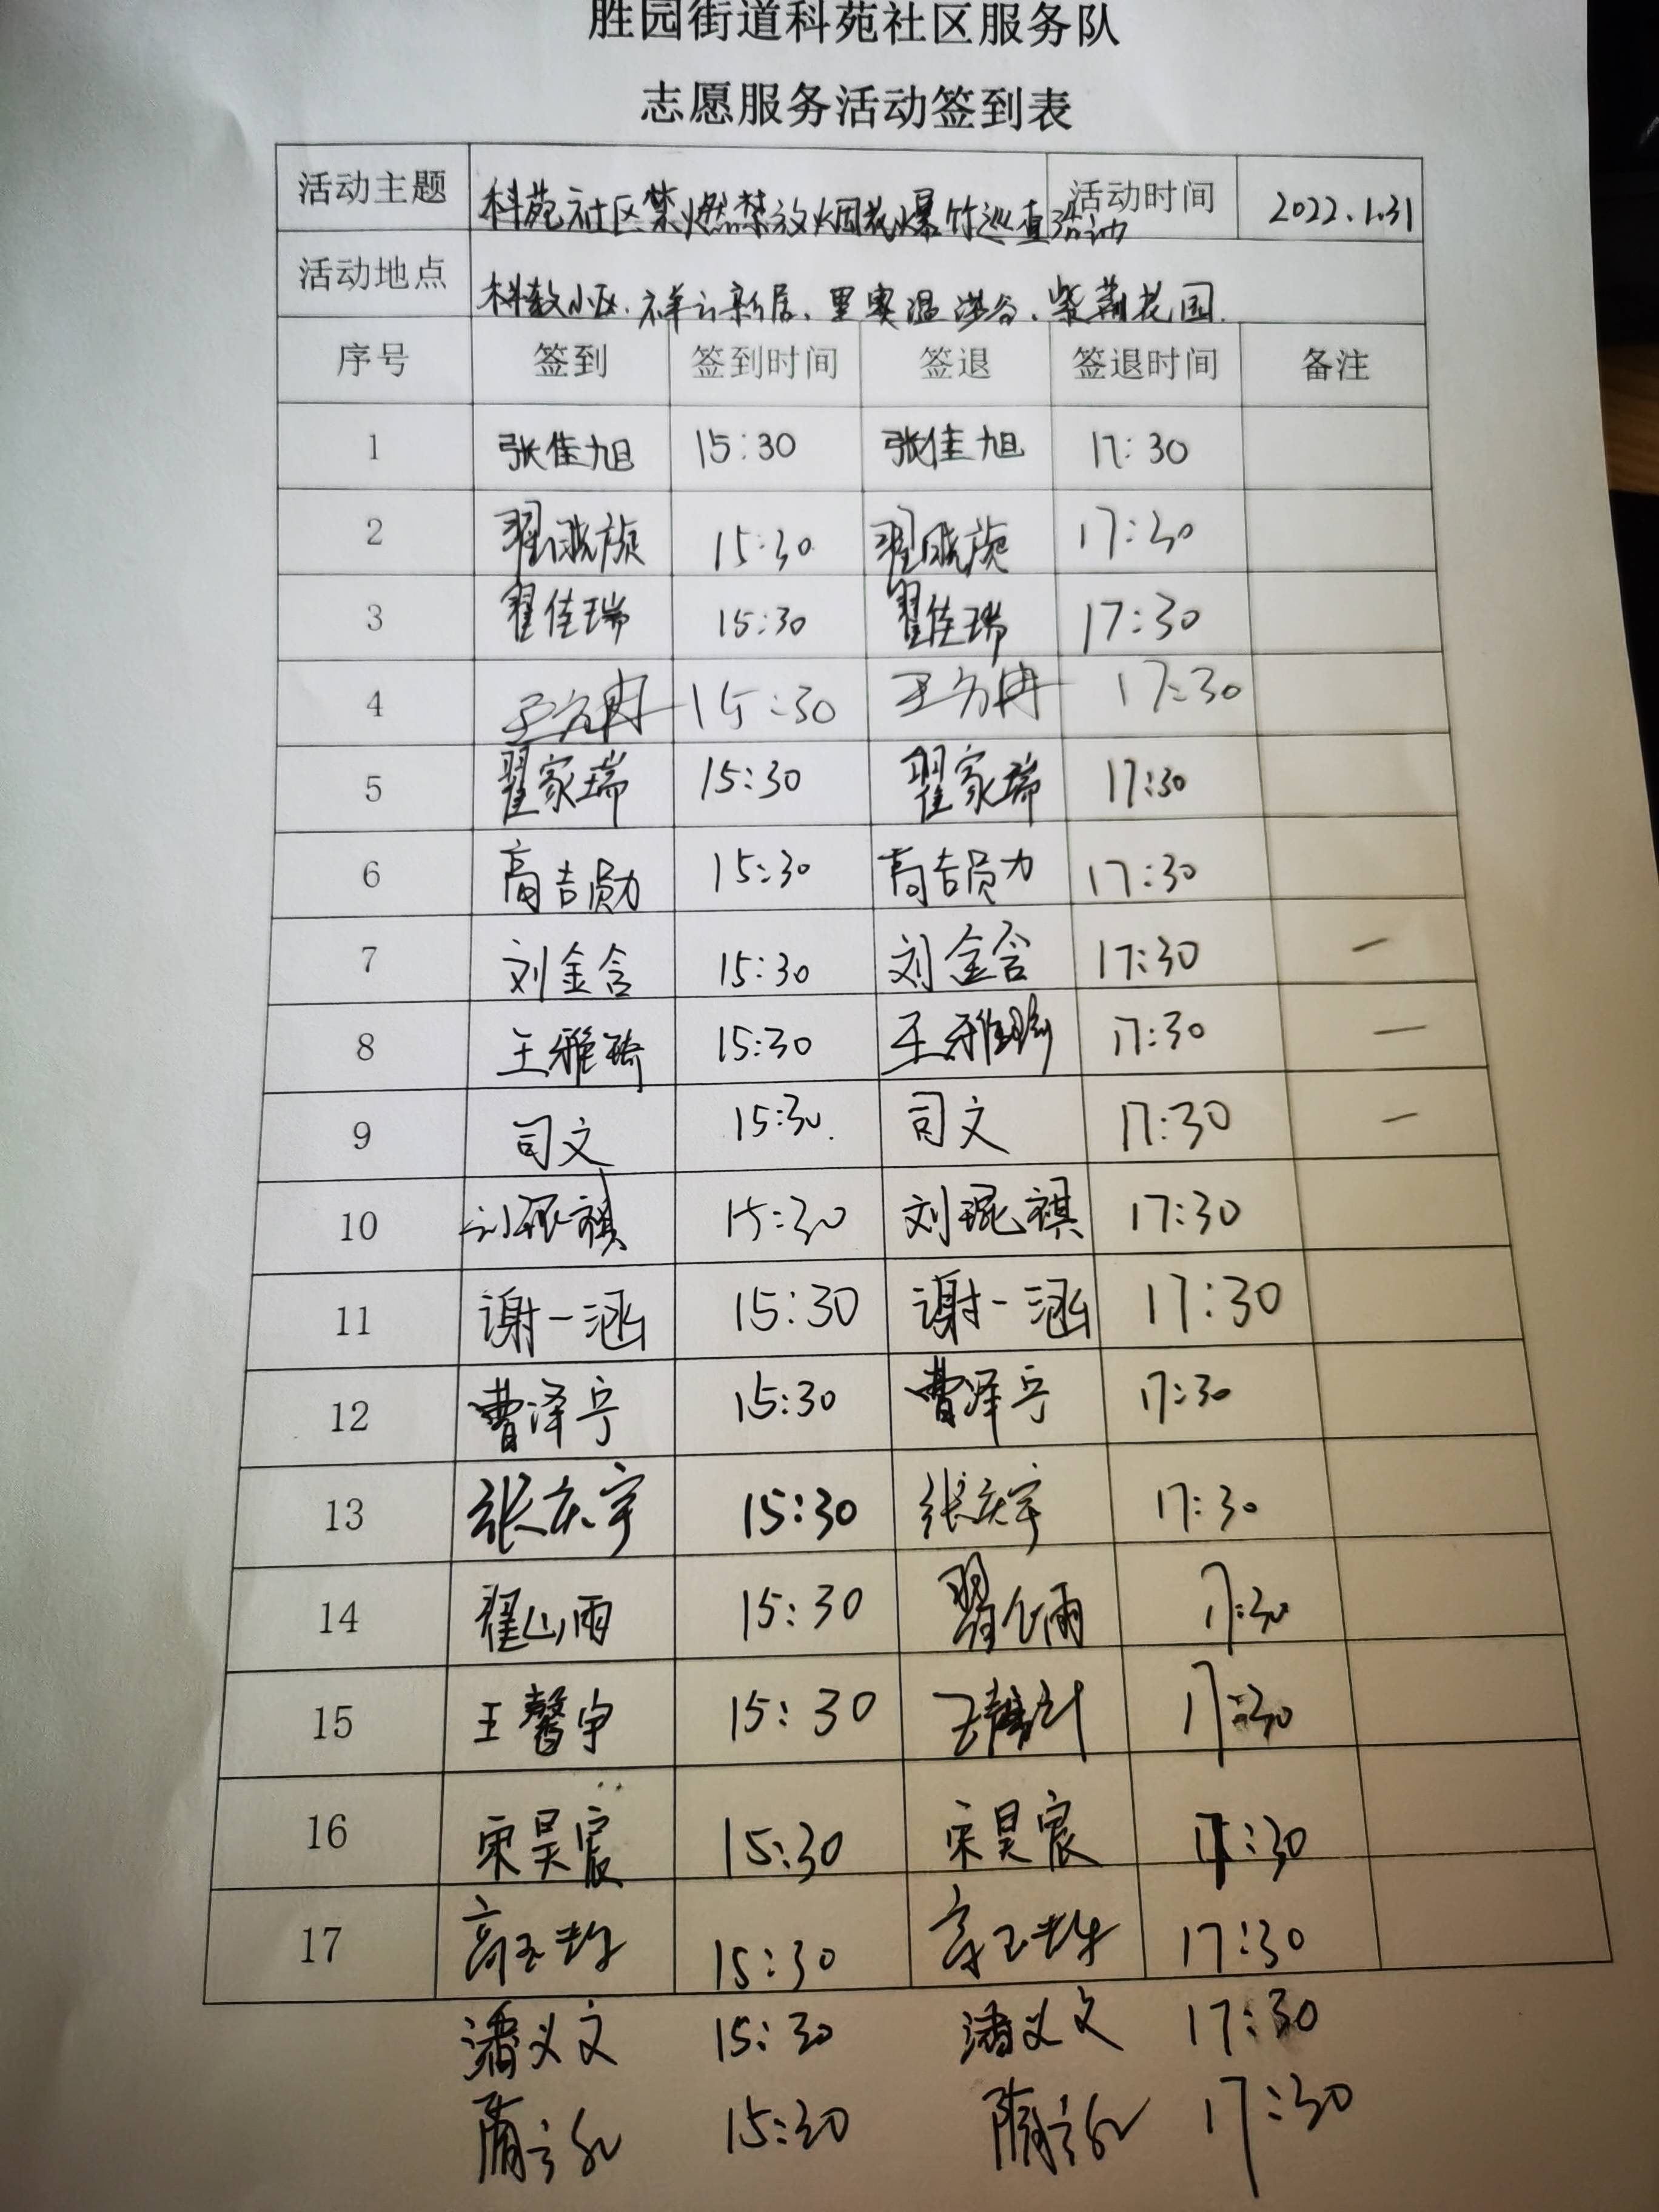 胜园街道科苑社区服务队
志愿服务活动签到表
活动主题 科苑社区禁燃禁放烟花爆竹巡查活动 活动时间 2022.1.31
活动地点 科教小区、祥云新居、里奥温泌谷、紫荆花园
序号 签到 签到时间 签退 签退时间 备注
1 张佳旭 15:30 张佳旭 17:30
2 翟晓旋 15:30 翟晓旋 17:30
3 翟佳瑞 15:30 翟佳瑞 17:30
4 15:30 王方冉 17:30
5 翟家瑞 15:30 翟家瑞 17:30
6 高吉勋 15:30 高吉勋 17:30
7 刘金含 15:30 刘金含 17:30 一
8 王雅琦 15:30 王雅琦 17:30 一
9 司文 15:30 司文 17:30 一
10 刘琨祺 15:30 刘琨祺 17:30
11 谢一涵 15:30 谢一涵 17:30
12 曹泽宁 15:30 曹泽宁 17:30
13 张庆宇 15:30 张庆宇 17:30
14 翟山雨 15:30 17:30
15 王馨宇 15:30 17:30
16 宋昊宸 15:30 宋昊宸 17:30
17 15:30 17:30
潘义文 15:30 潘义文 17:30
15:30 17:30